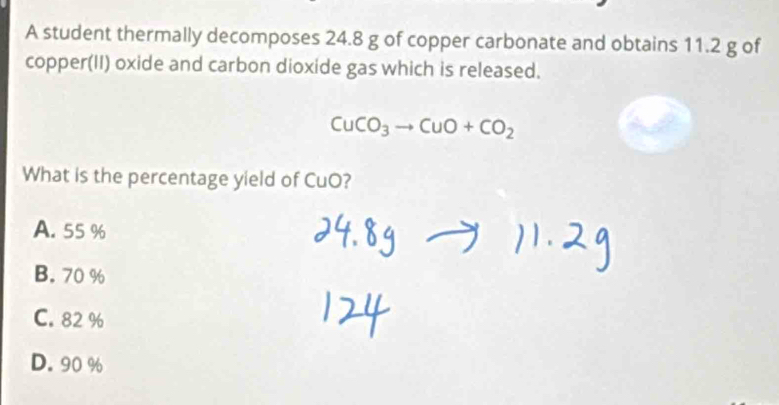 A student thermally decomposes 24.8 g of copper carbonate and obtains 11.2 g of
copper(II) oxide and carbon dioxide gas which is released.
CuCO₃ → CuO + CO₂
What is the percentage yield of CuO?
A. 55 %
B. 70 %
C. 82 %
D. 90 %
24.8g → 11.2g
124